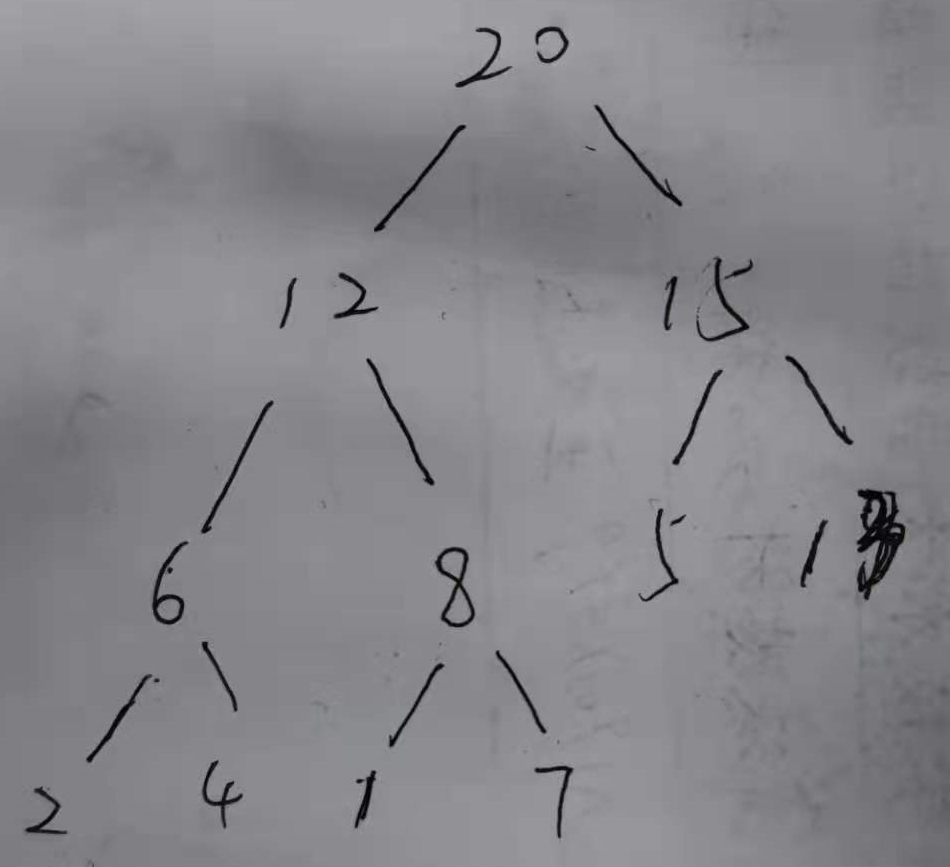 20
12 15
6 8 5
2 4 1 7